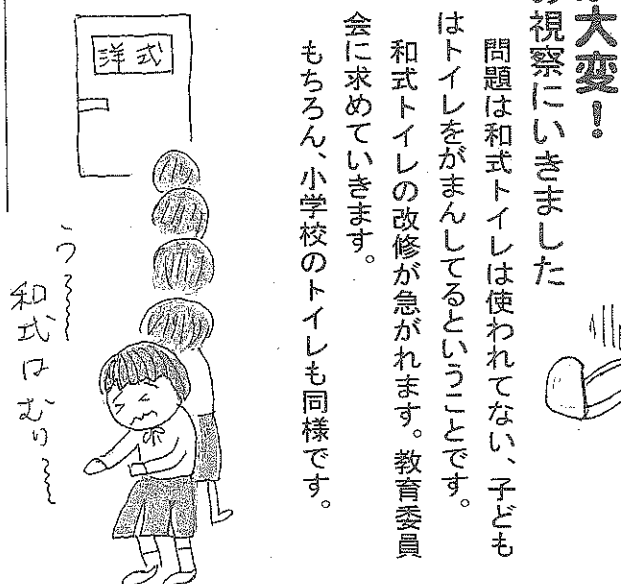 大変！
視察にいきました
問題は和式トイレは使われてない、子ども
はトイレをがまんしてるということです。
和式トイレの改修が急がれます。教育委員
会に求めていきます。
もちろん、小学校のトイレも同様です。
洋式
う～～
和式はむり～～